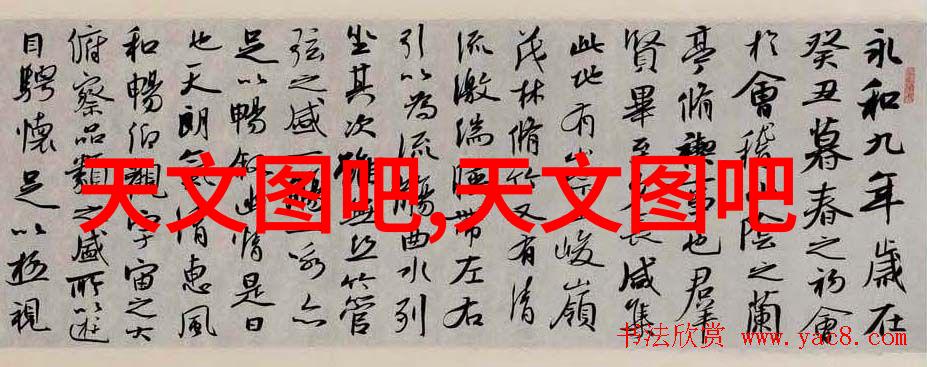 永和九年歲在
癸丑暮春之初會
於會稽山陰之蘭
亭脩禊事也羣
賢畢至少長咸集
此地有崇山峻嶺
茂林脩竹又有清
流激湍暎帶左右
引以為流觴曲水列
坐其次雖無絲竹管
弦之盛一觴一詠亦
足以暢敘幽情是日
也天朗氣清惠風
和暢仰觀宇宙之大
俯察品類之盛所以遊
目騁懷足以極視
天文图吧,天文图吧
书法欣赏 www.yac8.com